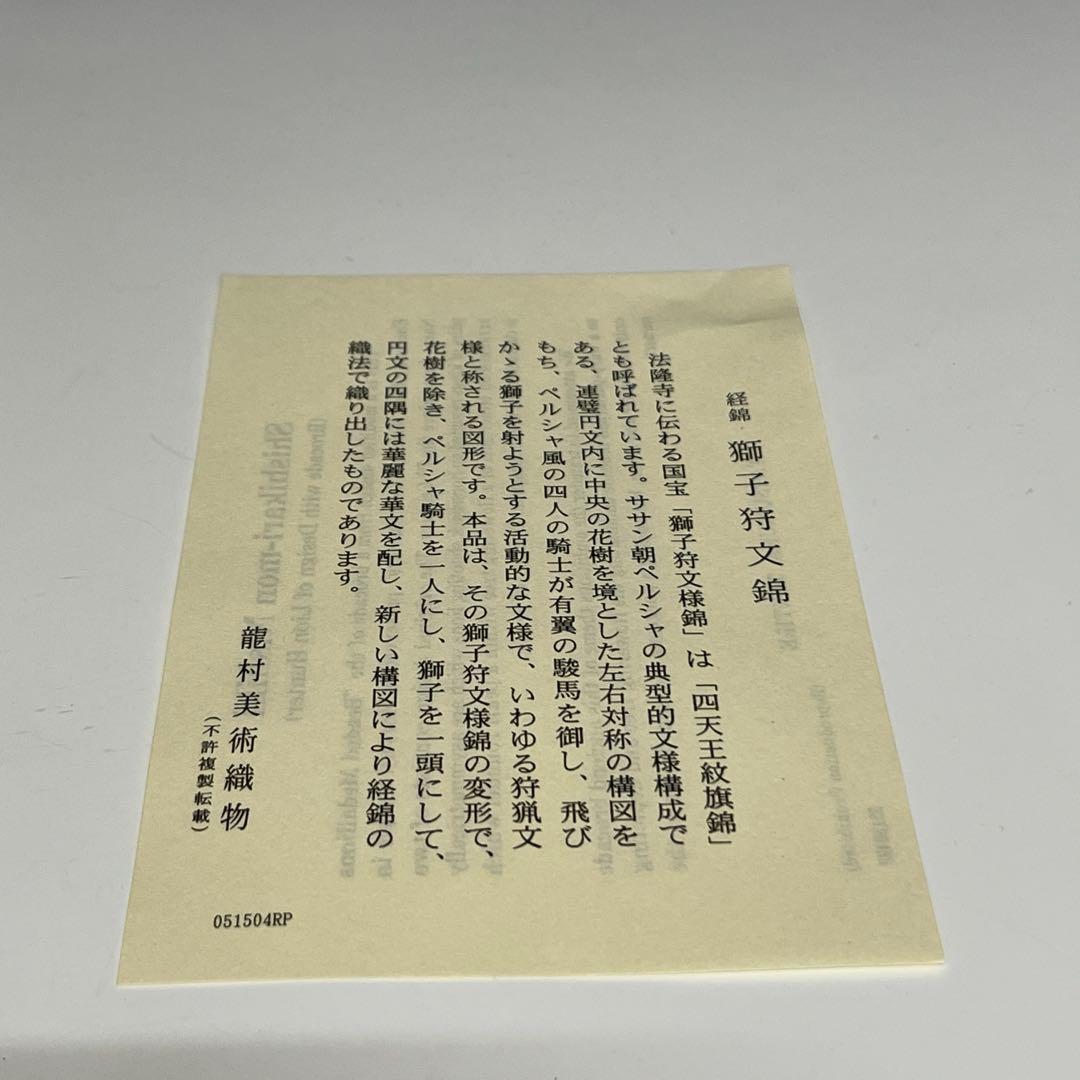 経錦 獅子狩文錦
法隆寺に伝わる国宝「獅子狩文様錦」は「四天王紋旗錦」
とも呼ばれています。ササン朝ペルシャの典型的文様構成で
ある、連璧円文内に中央の花樹を境とした左右対称の構図を
もち、ペルシャ風の四人の騎士が有翼の駿馬を御し、飛び
かゝる獅子を射ようとする活動的な文様で、いわゆる狩猟文
様と称される図形です。本品は、その獅子狩文様錦の変形で、
花樹を除き、ペルシャ騎士を一人にし、獅子を一頭にして、
円文の四隅には華麗な華文を配し、新しい構図により経錦の
織法で織り出したものであります。
龍村美術織物
(不許複製転載)
051504RP